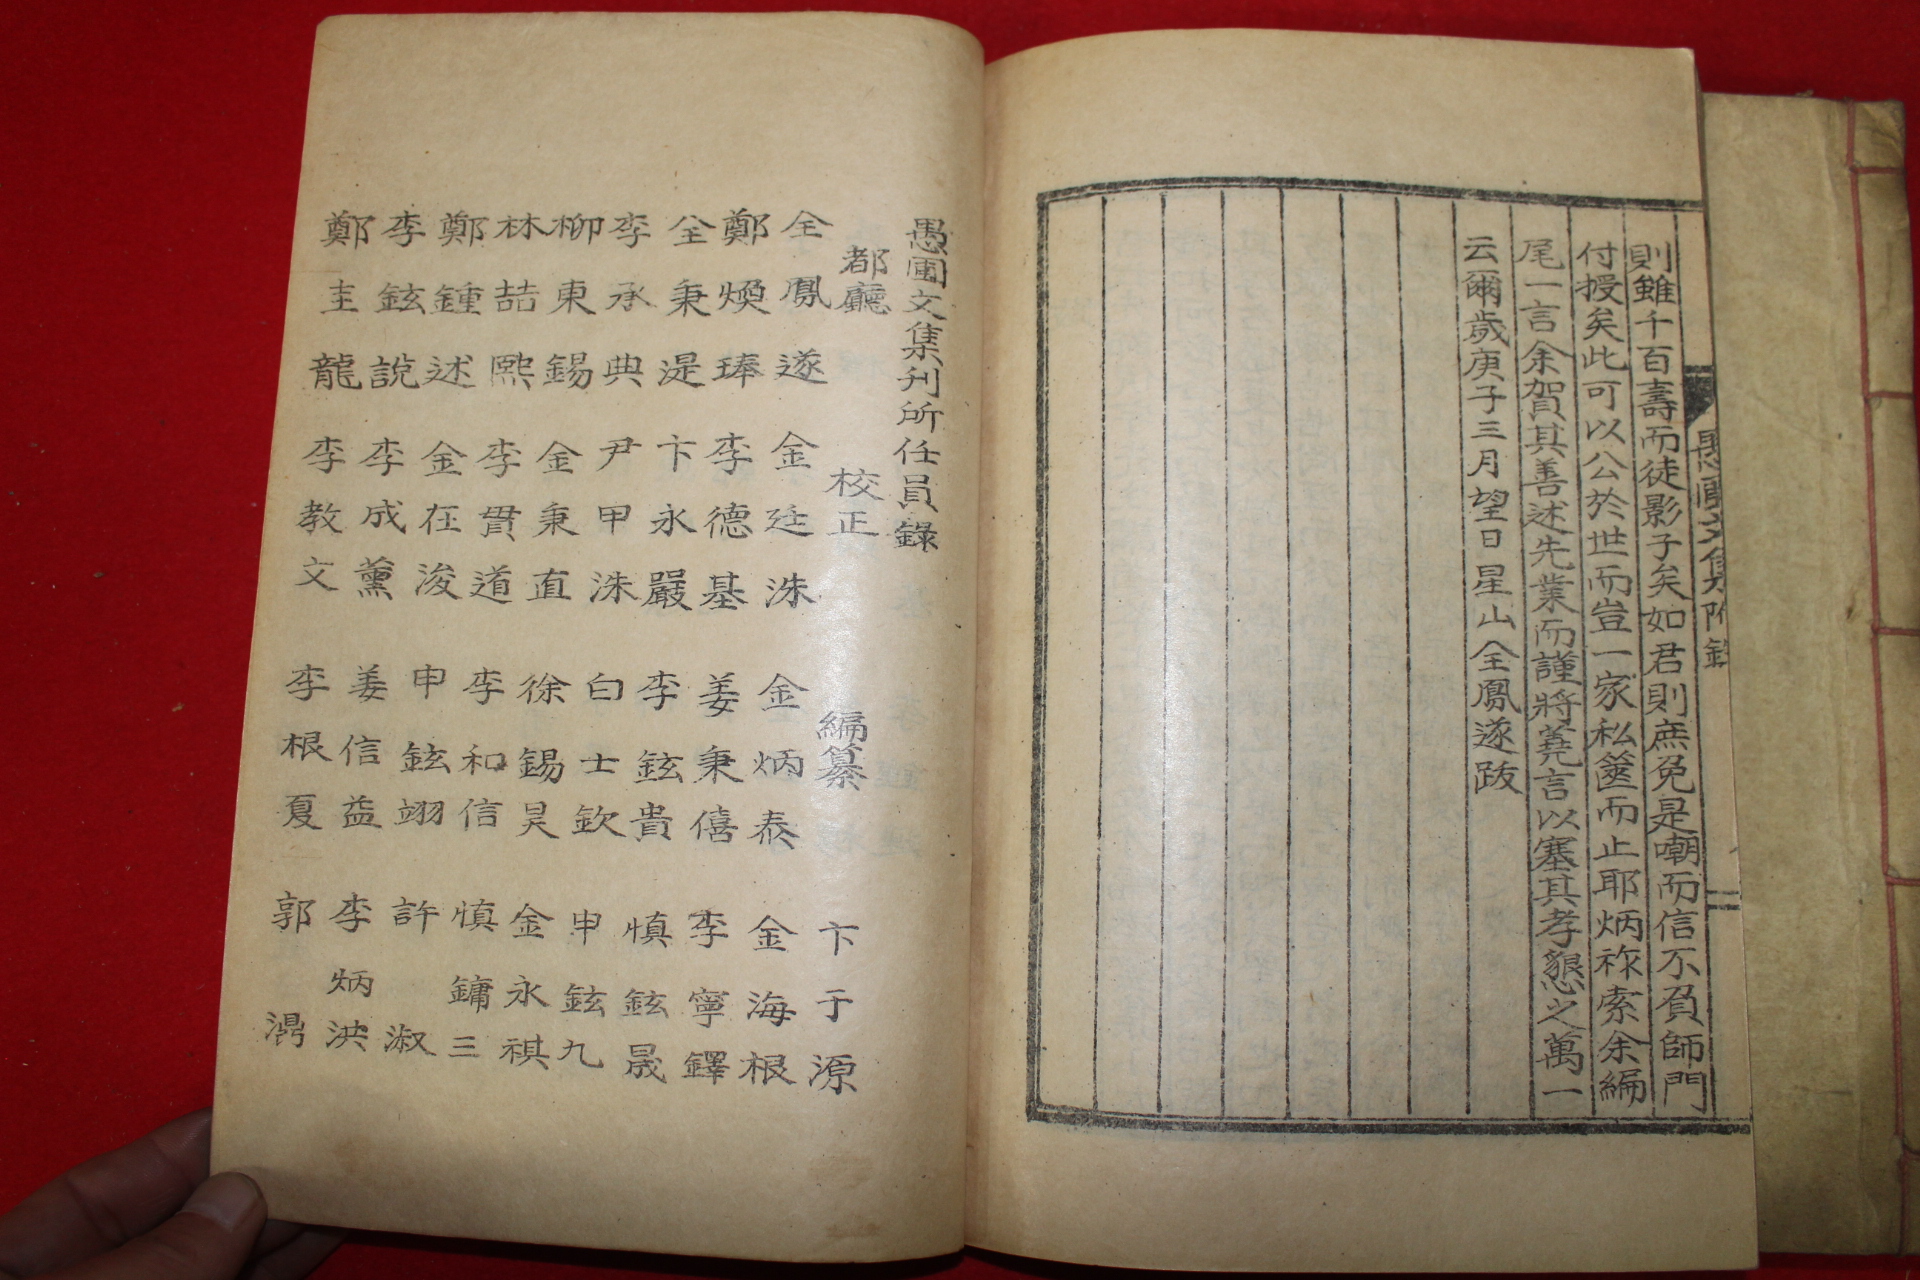 則雖千百壽而徒影子矣如君則庶免是嘲而信不負師門
付授矣此可以公於世而豈一家私篋而止耶炳祚索余編
尾一言余賀其善述先業而謹將蕘言以塞其孝懇之萬一
云爾歲庚子三月望日星山全鳳遂跋
愚圃文集附錄
愚圃文集刊所任員錄
都廳
全鳳遂
鄭煥琫
全秉湜
李承典
柳東錫
林喆熙
鄭鍾述
李鉉說
鄭圭龍
校正
金廷洙
李德基
卞永嚴
尹甲洙
金秉直
李貫道
金在浚
李成薰
李教文
編纂
金炳泰
姜秉僖
李鉉貴
白士欽
徐錫昊
李和信
申鉉翊
姜信益
李根夏
卞于源
金海根
李寧鐸
慎鉉晟
申鉉九
金永祺
慎鏞三
許淑
李炳洪
郭